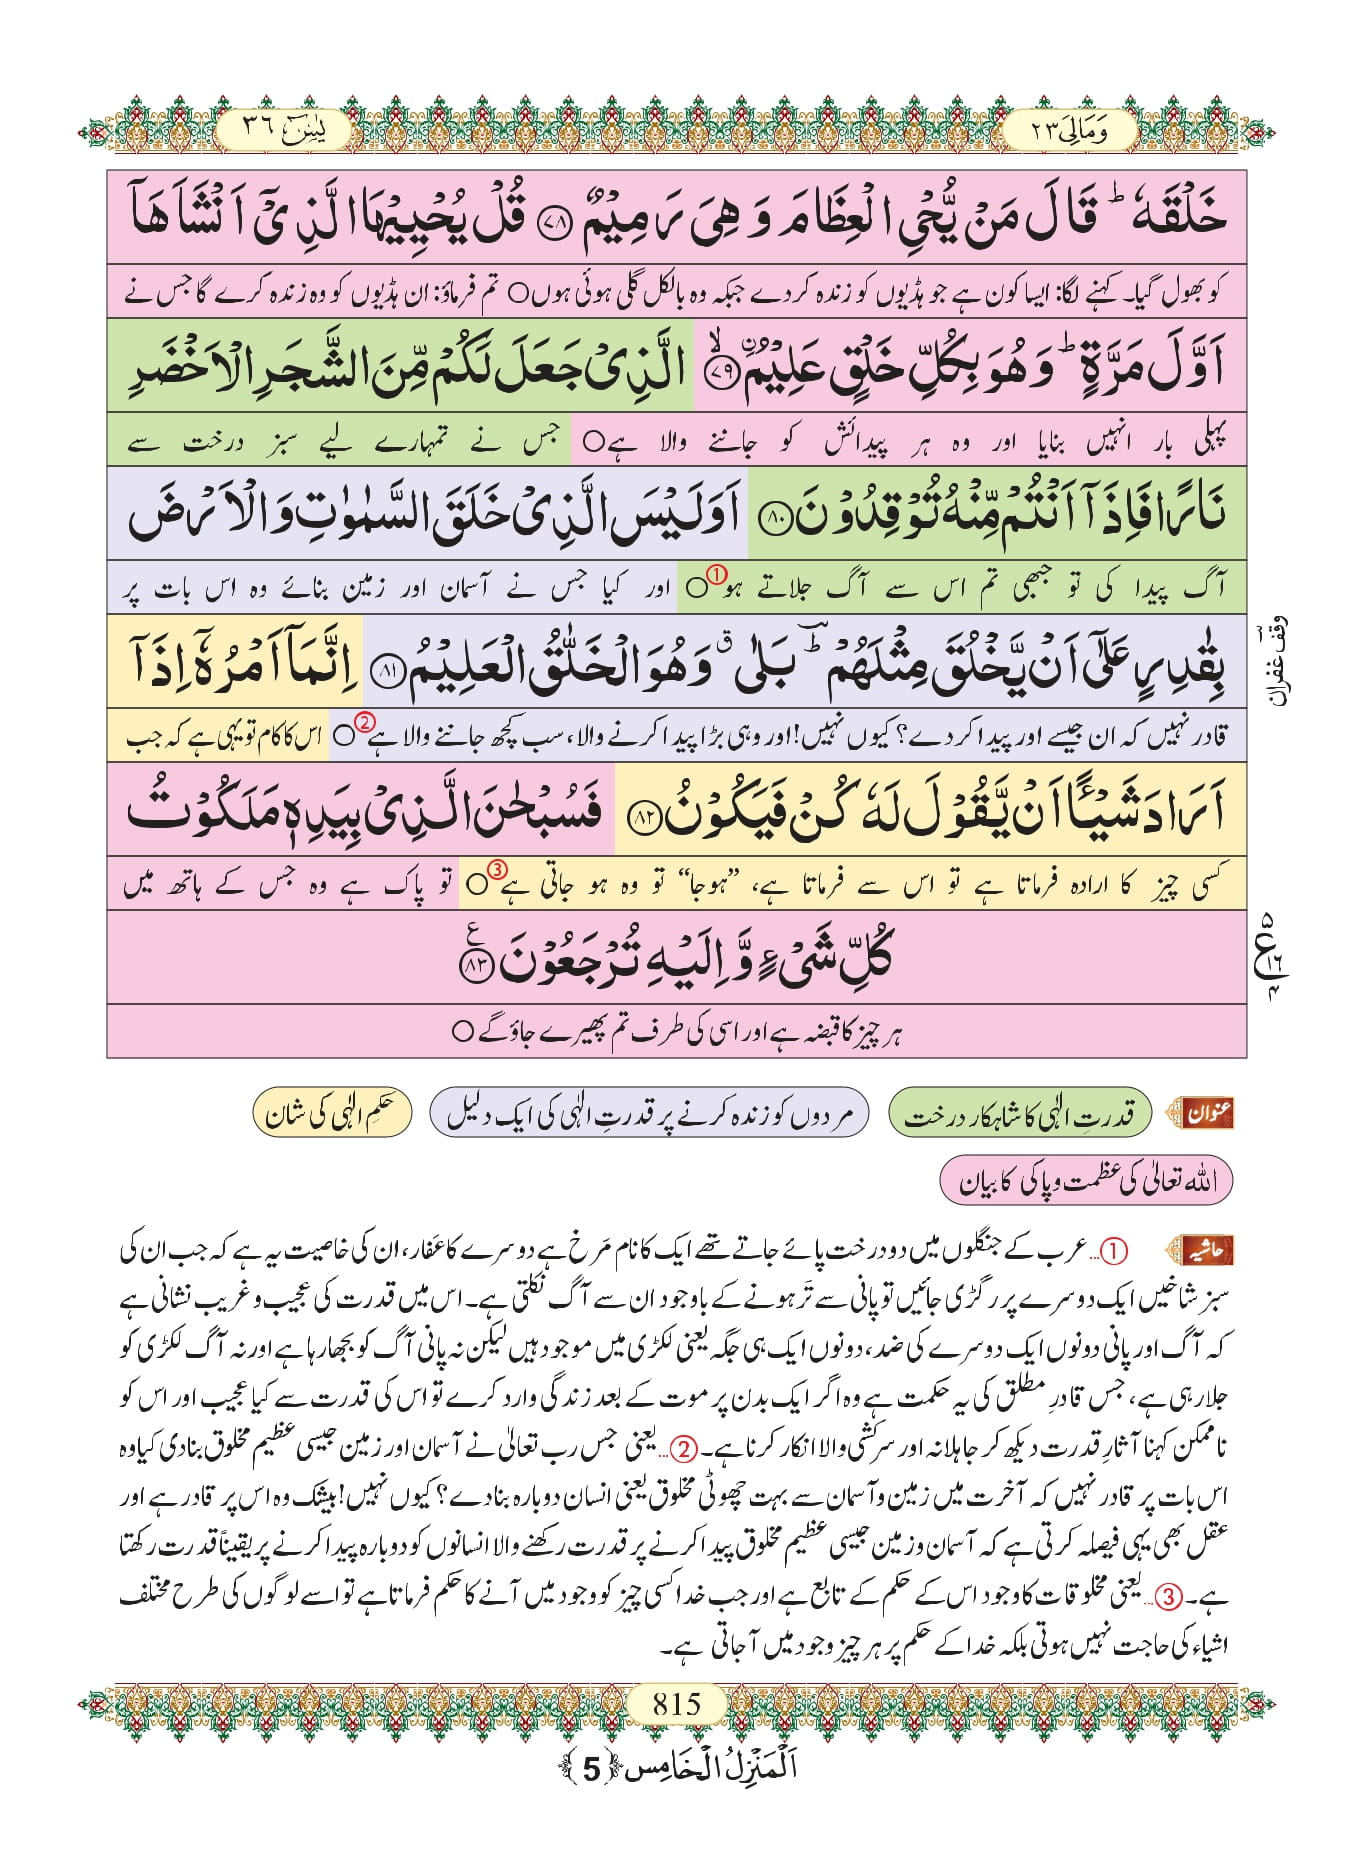 وَمَالِیَ ٢٣
یٰسٓ ٣٦
خَلْقَهٗ ؕ قَالَ مَنْ یُّحْیِ الْعِظَامَ وَ هِیَ رَمِیْمٌ ﴿۷۸﴾ قُلْ یُحْیِیْهَا الَّذِیْۤ اَنْشَاَهَاۤ
کو بھول گیا۔ کہنے لگا: ایسا کون ہے جو ہڈیوں کو زندہ کردے جبکہ وہ بالکل گلی ہوئی ہوں○ تم فرماؤ: ان ہڈیوں کو وہ زندہ کرے گا جس نے
اَوَّلَ مَرَّةٍ ؕ وَ هُوَ بِكُلِّ خَلْقٍ عَلِیْمُ ۙ﴿۷۹﴾ الَّذِیْ جَعَلَ لَكُمْ مِّنَ الشَّجَرِ الْاَخْضَرِ
پہلی بار انہیں بنایا اور وہ ہر پیدائش کو جاننے والا ہے○ جس نے تمہارے لیے سبز درخت سے
نَارًا فَاِذَاۤ اَنْتُمْ مِّنْهُ تُوْقِدُوْنَ ﴿۸۰﴾ اَوَ لَیْسَ الَّذِیْ خَلَقَ السَّمٰوٰتِ وَ الْاَرْضَ
آگ پیدا کی تو جبھی تم اس سے آگ جلاتے ہو①○ اور کیا جس نے آسمان اور زمین بنائے وہ اس بات پر
بِقٰدِرٍ عَلٰۤى اَنْ یَّخْلُقَ مِثْلَهُمْ ؕ بَلٰى ۗ وَ هُوَ الْخَلّٰقُ الْعَلِیْمُ ﴿۸۱﴾ اِنَّمَاۤ اَمْرُهٗۤ اِذَاۤ
وقف غفران
قادر نہیں کہ ان جیسے اور پیدا کردے؟ کیوں نہیں! اور وہی بڑا پیدا کرنے والا، سب کچھ جاننے والا ہے②○ اس کا کام تو یہی ہے کہ جب
اَرَادَ شَیْــٴًـا اَنْ یَّقُوْلَ لَهٗ كُنْ فَیَكُوْنُ ﴿۸۲﴾ فَسُبْحٰنَ الَّذِیْ بِیَدِهٖ مَلَكُوْتُ
کسی چیز کا ارادہ فرماتا ہے تو اس سے فرماتا ہے، ”ہوجا“ تو وہ ہو جاتی ہے③○ تو پاک ہے وہ جس کے ہاتھ میں
كُلِّ شَیْءٍ وَّ اِلَیْهِ تُرْجَعُوْنَ ﴿۸۳﴾ع
٥ ع ١٦ ٤
ہر چیز کا قبضہ ہے اور اسی کی طرف تم پھیرے جاؤ گے ○
عنوان قدرتِ الٰہی کا شاہکار درخت مردوں کو زندہ کرنے پر قدرتِ الٰہی کی ایک دلیل حکمِ الٰہی کی شان
اللہ تعالیٰ کی عظمت و پاکی کا بیان
حاشیہ ①… عرب کے جنگلوں میں دو درخت پائے جاتے تھے ایک کا نام مَرخ ہے دوسرے کا عَفار، ان کی خاصیت یہ ہے کہ جب ان کی
سبز شاخیں ایک دوسرے پر رگڑی جائیں تو پانی سے تَر ہونے کے باوجود ان سے آگ نکلتی ہے۔ اس میں قدرت کی عجیب و غریب نشانی ہے
کہ آگ اور پانی دونوں ایک دوسرے کی ضد، دونوں ایک ہی جگہ یعنی لکڑی میں موجود ہیں لیکن نہ پانی آگ کو بجھا رہا ہے اور نہ آگ لکڑی کو
جلا رہی ہے، جس قادرِ مطلق کی یہ حکمت ہے وہ اگر ایک بدن پر موت کے بعد زندگی وارد کرے تو اس کی قدرت سے کیا عجیب اور اس کو
ناممکن کہنا آثارِ قدرت دیکھ کر جاہلانہ اور سرکشی والا انکار کرنا ہے۔ ②… یعنی جس رب تعالیٰ نے آسمان اور زمین جیسی عظیم مخلوق بنادی کیا وہ
اس بات پر قادر نہیں کہ آخرت میں زمین و آسمان سے بہت چھوٹی مخلوق یعنی انسان دوبارہ بنادے؟ کیوں نہیں! بیشک وہ اس پر قادر ہے اور
عقل بھی یہی فیصلہ کرتی ہے کہ آسمان و زمین جیسی عظیم مخلوق پیدا کرنے پر قدرت رکھنے والا انسانوں کو دوبارہ پیدا کرنے پر یقیناً قدرت رکھتا
ہے۔ ③… یعنی مخلوقات کا وجود اس کے حکم کے تابع ہے اور جب خدا کسی چیز کو وجود میں آنے کا حکم فرماتا ہے تو اسے لوگوں کی طرح مختلف
اشیاء کی حاجت نہیں ہوتی بلکہ خدا کے حکم پر ہر چیز وجود میں آجاتی ہے۔
815
اَلْمَنْزِلُ الْخَامِس ﴿5﴾